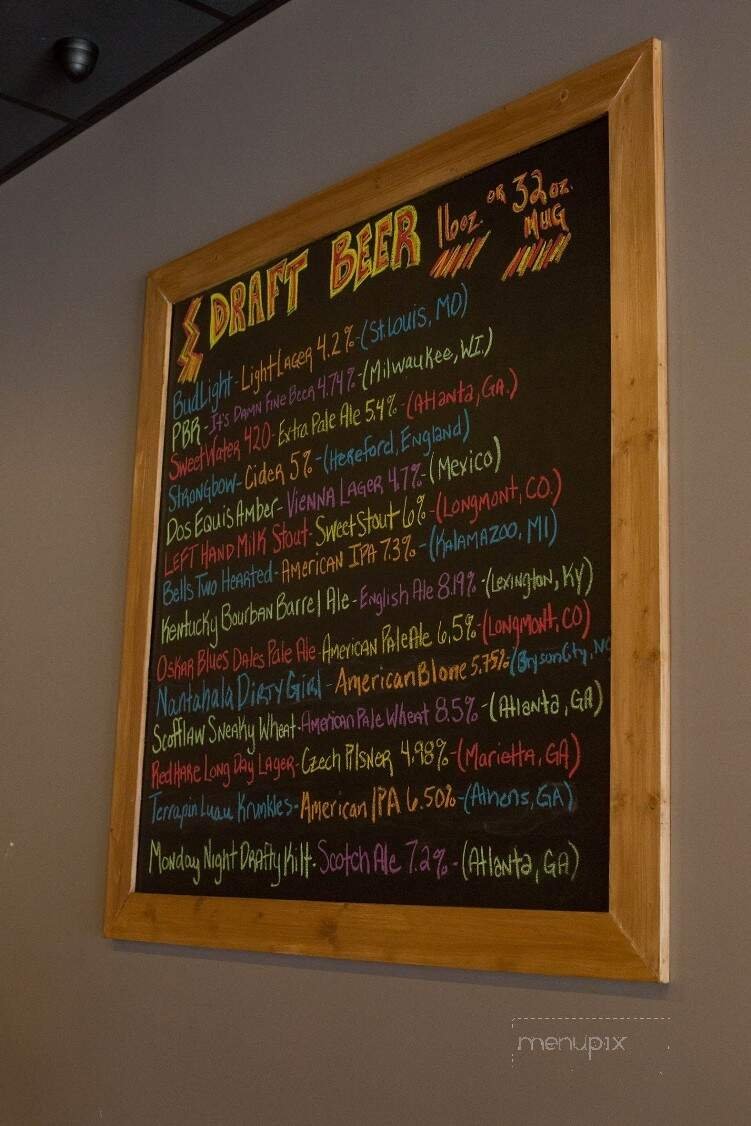 DRAFT BEER 16oz. OR 32oz. MUG
Bud Light - Light Lager 4.2% - (St. Louis, MO)
PBR - It's Damn Fine Beer 4.74% - (Milwaukee, WI.)
SweetWater 420 - Extra Pale Ale 5.4% - (Atlanta, GA.)
Strongbow - Cider 5% - (Hereford, England)
Dos Equis Amber - Vienna Lager 4.7% - (Mexico)
LEFT HAND Milk Stout - Sweet Stout 6% - (Longmont, CO.)
Bells Two Hearted - American IPA 7.3% - (KALAMAZOO, MI)
Kentucky Bourban Barrel Ale - English Ale 8.19% - (Lexington, KY)
Oskar Blues Dales Pale Ale - American Pale Ale 6.5% - (Longmont, CO)
Nantahala Dirty Girl - American Blone 5.75% (Bryson City, NC
Scofflaw Sneaky Wheat - American Pale Wheat 8.5% - (Atlanta, GA)
Red Hare Long Day Lager - Czech Pilsner 4.98% - (Marietta, GA)
Terrapin Luau Krunkles - American IPA 6.50% - (Athens, GA)
Monday Night Drafty Kilt - Scotch Ale 7.2% - (Atlanta, GA)
menupix